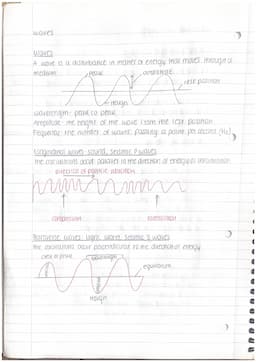 waves
Waves
A wave is a disturbance in matter or energy that moves through a
medium.
peak
amplitude
rest position
trough
wavelength: peak to peak
Amplitude: the height of the wave from the rest position
Frequency: the number of waves passing a point per second (Hz)
Longitudinal waves: sound, seismic P waves
The oscillations occur parallel to the direction of energy
direction of particle vibration
compression
rarefaction
Transverse waves: light, water, seismic S waves
The oscillations occur perpendicular to the direction of energy
crest or peak
wavelength
equilibrium
trough